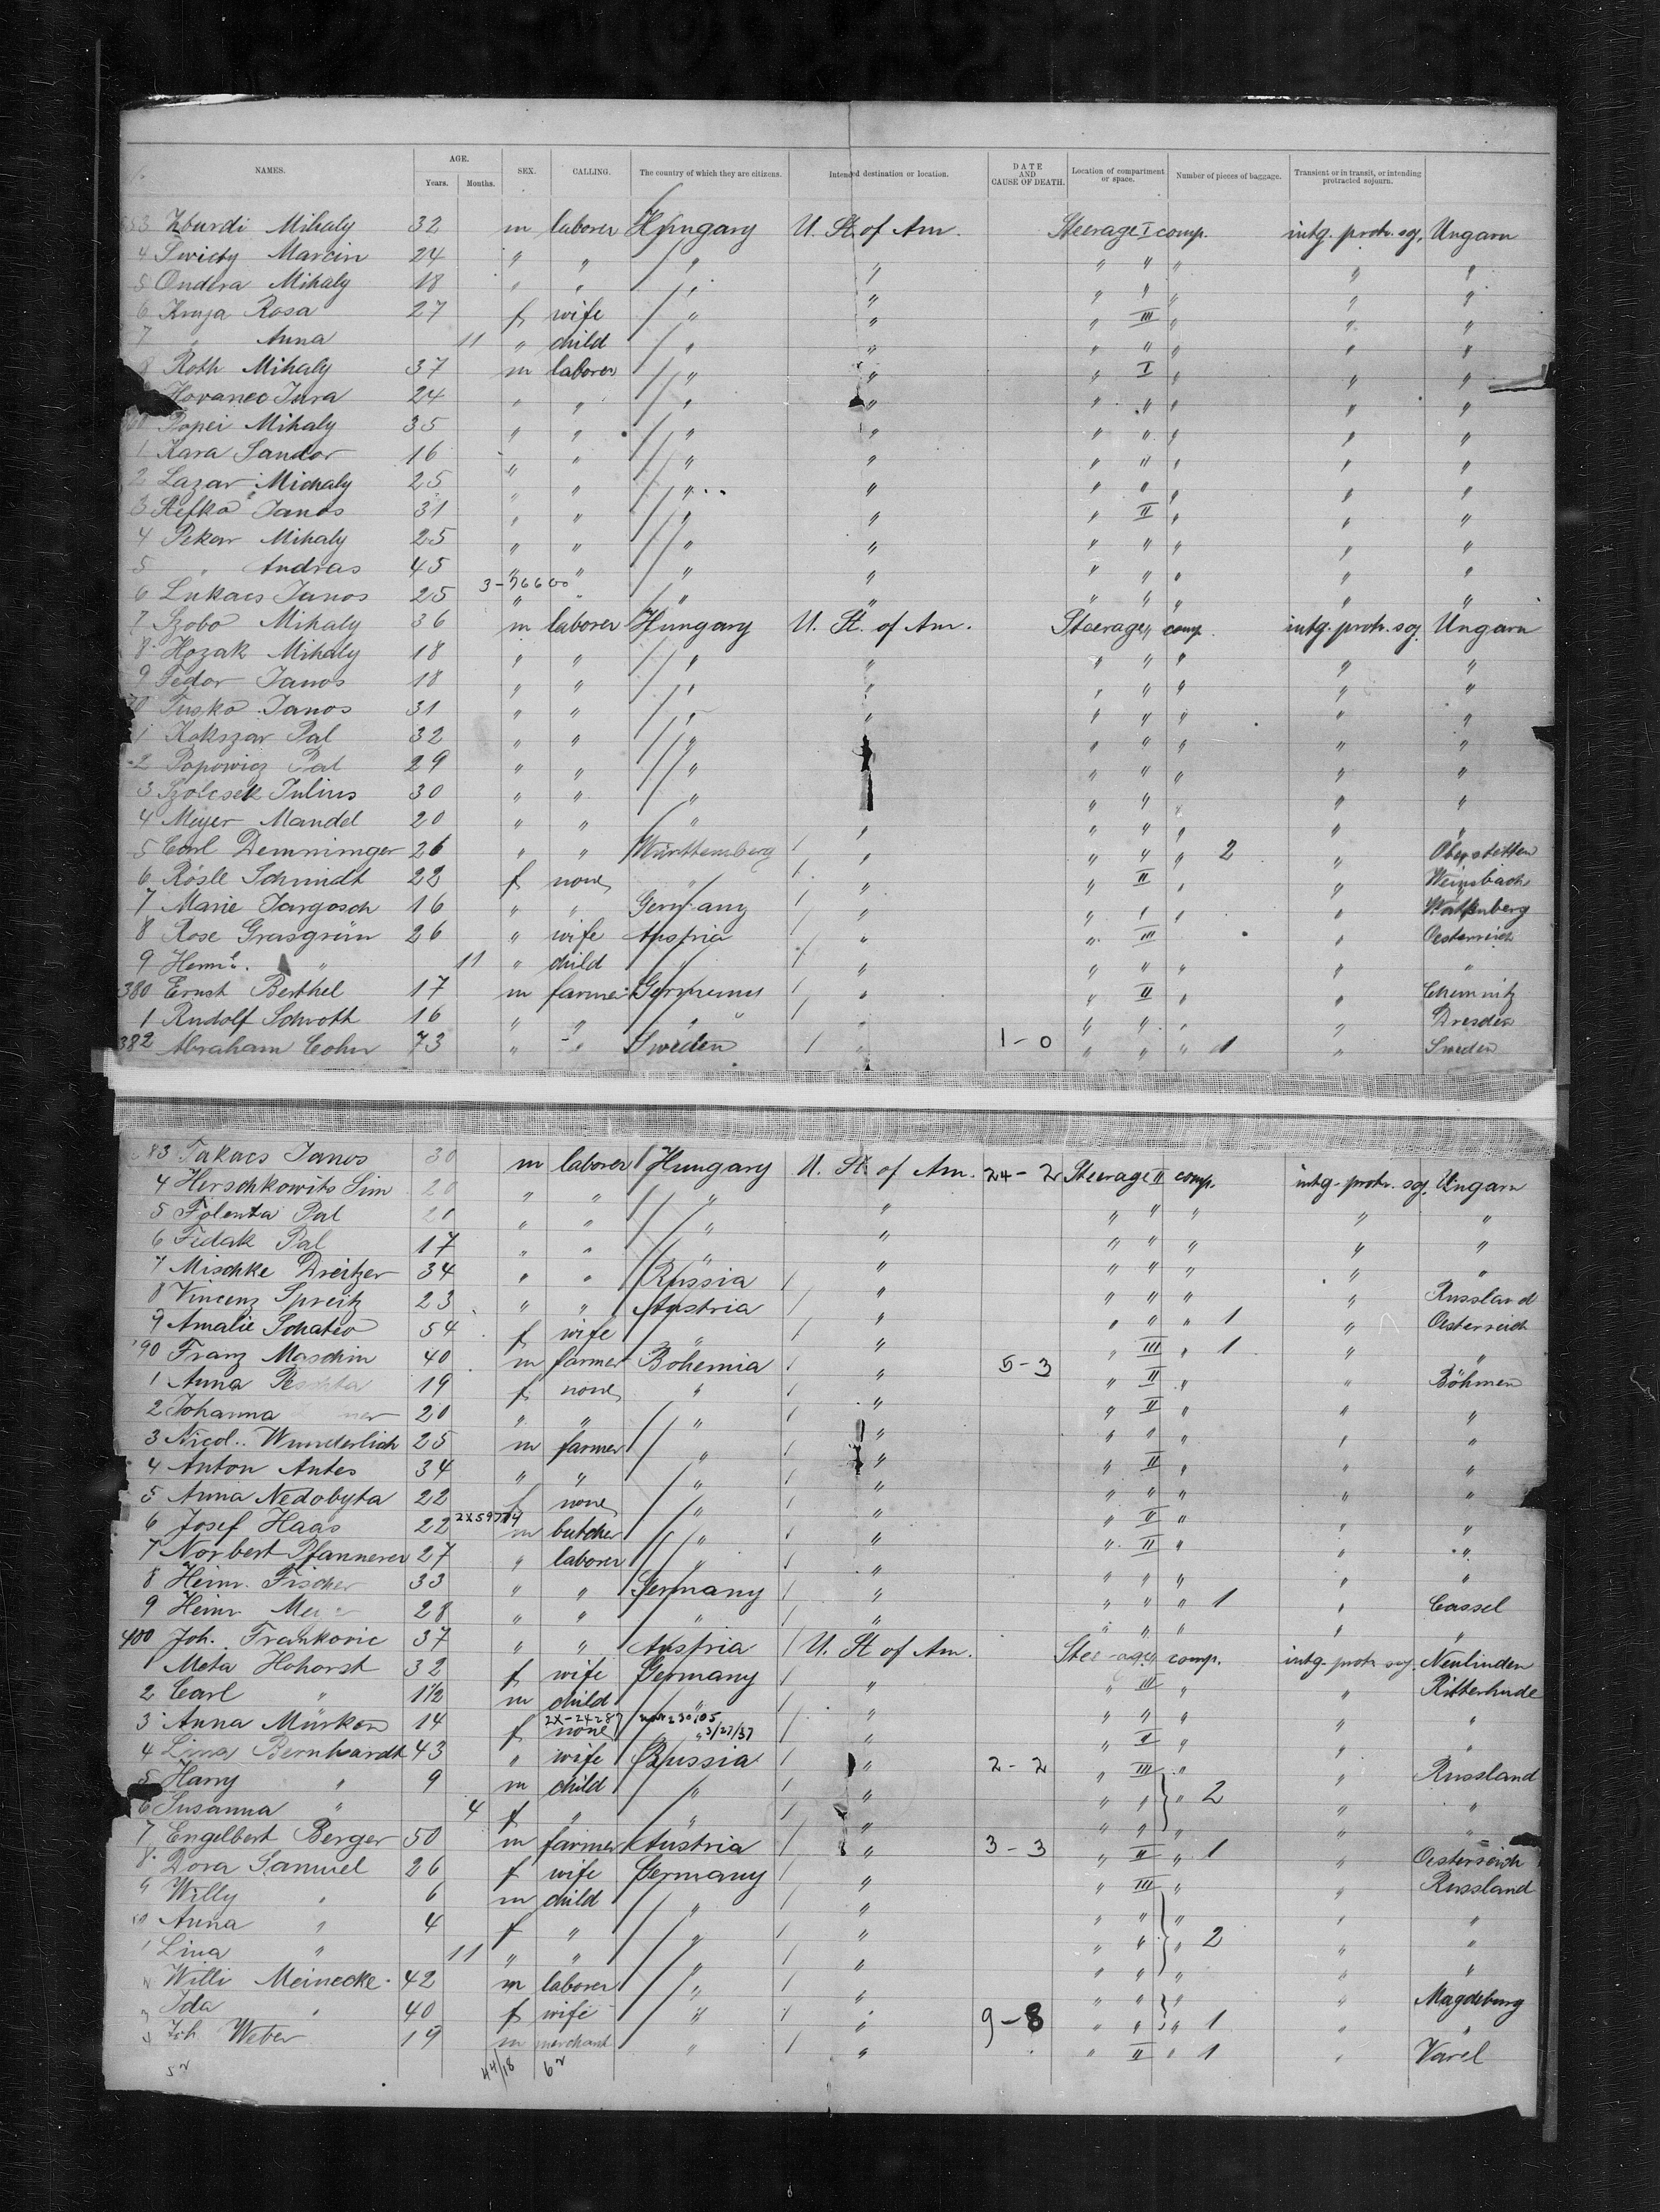 NAMES. AGE. Years. Months. SEX. CALLING. The country of which they are citizens. Intended destination or location. DATE AND CAUSE OF DEATH. Location of compartment or space. Number of pieces of baggage. Transient or in transit, or intending protracted sojourn.
Mihaly 32 m laborer Hungary U. St. of Am. Steerage I comp. intg. protr. soj. Ungarn
4 Marcin 24 " " " " " " " " "
5 Ondera Mihaly 18 " " " " " " " " "
6 Kruja Rosa 27 f wife " " " III " " "
7 " Anna 11 " child " " " " " " "
8 Roth Mihaly 37 m laborer " " " I " " "
Hovanec Jura 24 " " " " " " " " "
Popei Mihaly 35 " " " " " " " " "
1 Kara Sandor 16 " " " " " " " " "
2 Lazar Michaly 25 " " " " " " " " "
3 Stefko Janos 31 " " " " " II " " "
4 Pekar Mihaly 25 " " " " " " " " "
5 " Andras 45 " " " " " " " " "
6 Lukacs Janos 25 " " " " " " " " "
7 Szobo Mihaly 36 m laborer Hungary U. St. of Am. Steerage " comp. intg. protr. soj. Ungarn
8 Hozak Mihaly 18 " " " " " " " " "
9 Fedor Janos 18 " " " " " " " " "
Tusko Janos 31 " " " " " " " " "
1 Kokszar Pal 32 " " " " " " " " "
2 Popowicz Pal 29 " " " " " " " " "
3 Szolcsek Julius 30 " " " " " " " " "
4 Meyer Mandel 20 " " " " " " " " "
5 Carl Demninger 26 " " Württemberg " " " " 2 " Oberstetten
6 Rösle Schmidt 22 f none " " " II " " Weinsbach
7 Marie Jargosch 16 " " Germany " " " " "
8 Rose Grasgrün 26 " wife Austria " " III " Oesterreich
9 " 11 " child " " " " " " "
380 Ernst Berthel 17 m farmer Germany " " II " " Chemnitz
1 Rudolf Schroth 16 " " " " " " " " Dresden
382 Abraham Cohn 73 " " Sweden " 1-0 " " " 1 " Sweden
83 Takacs Janos 30 m laborer Hungary U. St. of Am. 24-2 Steerage II comp. intg. protr. soj. Ungarn
4 Herschkowits Sim 20 " " " " " " " " "
5 Folenta Pal " " " " " " " " "
6 Fidak Pal 17 " " " " " " " " "
7 Mischke Dreitzer 34 " " Russia " " " " " Russland
8 Vincenz Spreitz 23 " " Austria " " " " 1 " Oesterreich
9 Amalie 54 f wife " " " III " 1 " "
90 Franz Maschin 40 m farmer Bohemia " 5-3 " II " " Böhmen
1 Anna 19 f none " " " II " " "
2 Johanna 20 " " " " " " " " "
3 Nicol. Wunderlich 25 m farmer " " " II " " "
4 Anton Antes 34 " " " " " " " " "
5 Anna Nedobyta 22 f none " " " II " " "
6 Josef Haas 22 m butcher " " " II " " "
7 Norbert Pfannerer 27 " laborer " " " " " " "
8 Heinr. Fischer 33 " " Germany " " " " 1 " Cassel
9 Heinr 28 " " " " " " " " "
400 Joh. Frankovic 37 " " Austria U. St of Am. Steerage " comp. intg. protr. soj. Neulinden
1 Meta Hohorst 32 f wife Germany " " III " " Ritterhude
2 Carl " 1½ m child " " " " " " "
3 Anna Mürken 14 f none " 3/27/37 " " II " " "
4 Lina Bernhardt 43 " wife Russia " 2-2 " III " " Russland
5 Harry " 9 m child " " " " " 2 " "
6 Susanna " 4 f " " " " " " " "
7 Engelbert Berger 50 m farmer Austria " 3-3 " II " 1 " Oesterreich
8 Dora Samuel 26 f wife Germany " " III " " Russland
9 Willy " 6 m child " " " " " " "
10 Anna " 4 f " " " " " " 2 " "
1 Lina " 11 " " " " " " " " "
Willi Meinecke 42 m laborer " " " " " " Magdeburg
Ida " 40 f wife " " 9-8 " " " 1 " "
Joh. Weber 19 m merchant " " " II " 1 " Varel
44/18